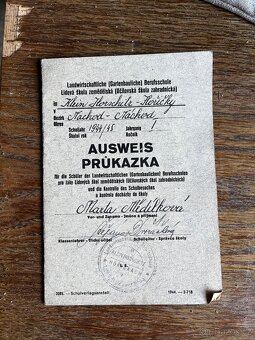 Landwirtschaftliche (Gartenbauliche) Berufsschule
Lidová škola zemědělská (Učňovská škola zahradnická)
in
v Klein Horschitz-Hořičky
Bezirk
Okres Náchod-Náchod
Schuljahr
Školní rok 1944/45 Jahrgang
Ročník I
AUSWEIS
PRŮKAZKA
für die Schüler der Landwirtschaftlichen (Gartenbaulichen) Berufsschulen
pro žáky Lidových škol zemědělských (Učňovských škol zahradnických)
und die Kontrolle des Schulbesuches
a kontrola docházky do školy
Marta Medilková
Vor- und Zuname - Jméno a příjmení
Klassenlehrer - Třídní učitel Schulleiter - Správce školy
Schulverlagsanstalt
1944